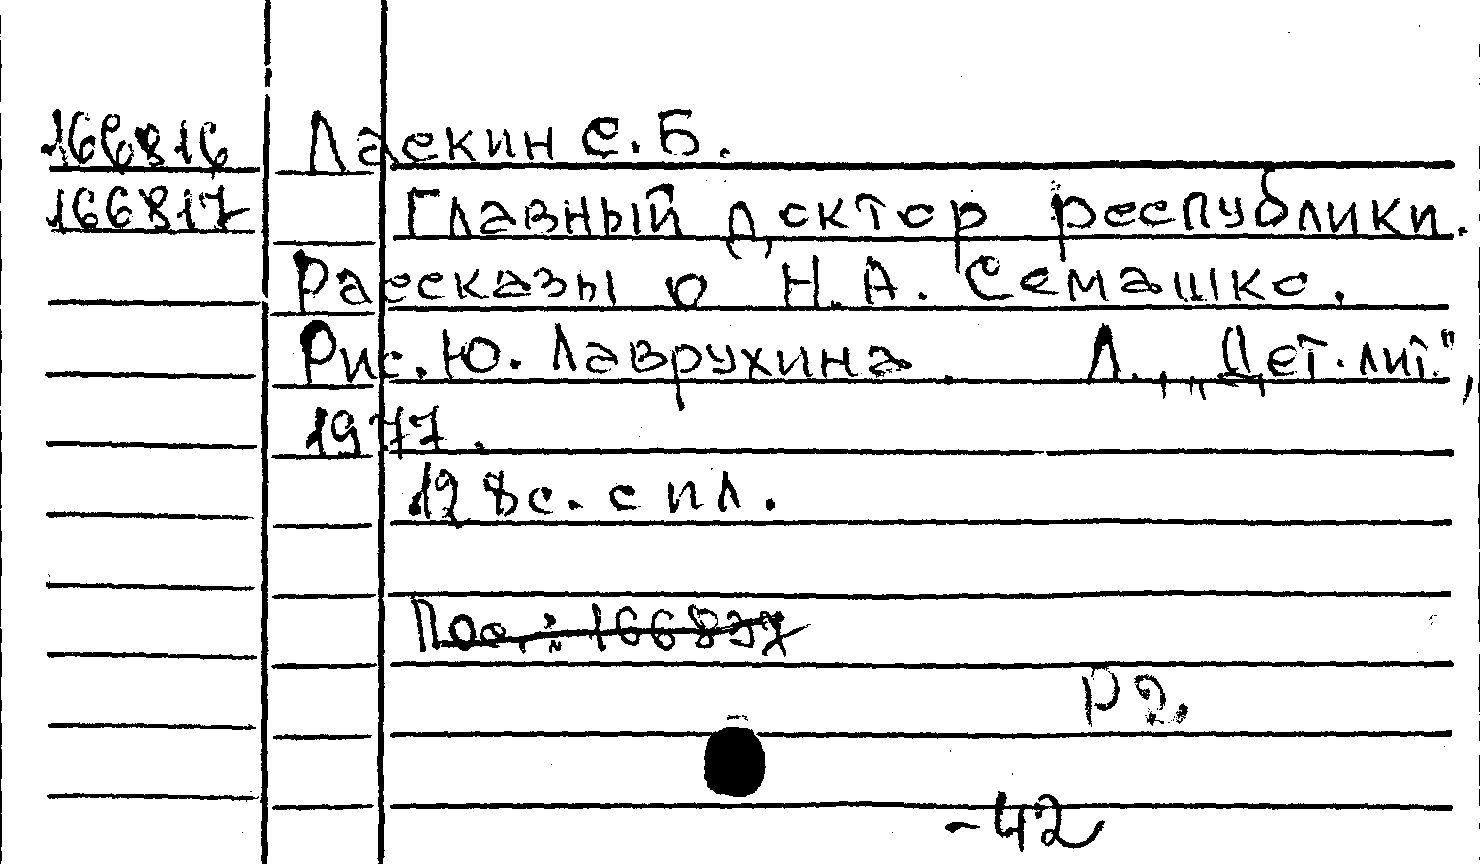 166816 Ласкин С. Б.
166817 Главный доктор республики.
Рассказы о Н. А. Семашко.
Рис. Ю. Лаврухина. Л., „Дет. лит.",
1977.
128 с. с ил.
Р2.
-42